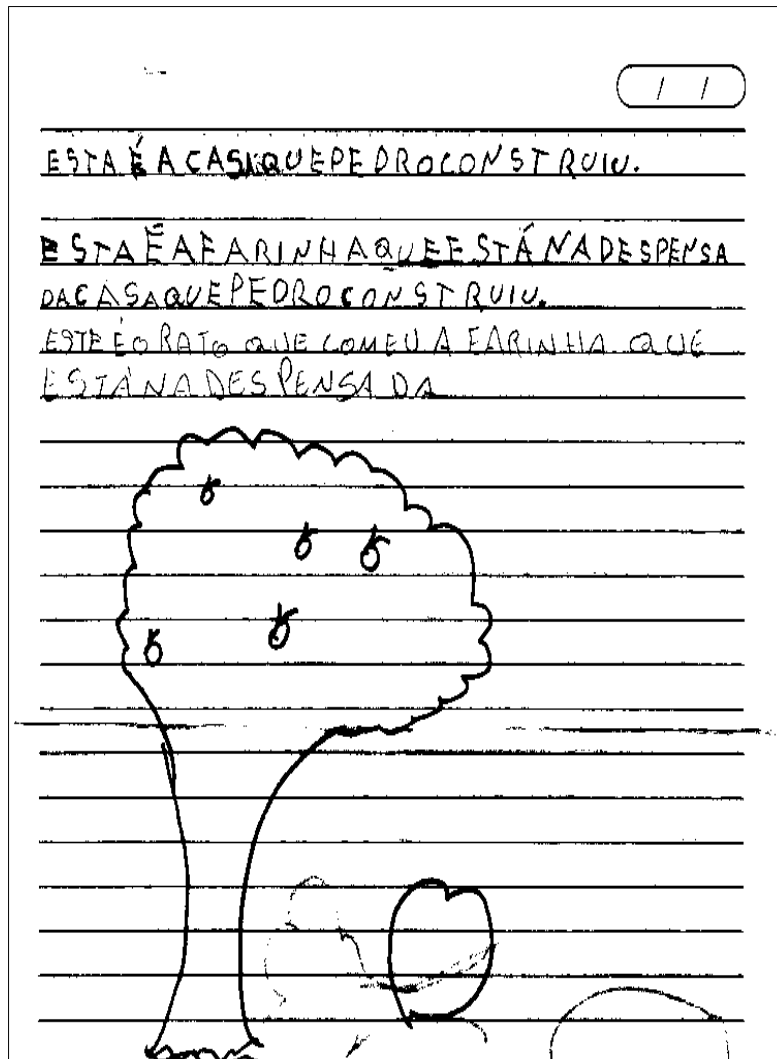 ESTA É A CASA QUE PEDRO CONSTRUIU.
ESTA É A FARINHA QUE ESTÁ NA DESPENSA
DA CASA QUE PEDRO CONSTRUIU.
ESTE É O RATO QUE COMEU A FARINHA QUE
ESTÁ NA DESPENSA DA